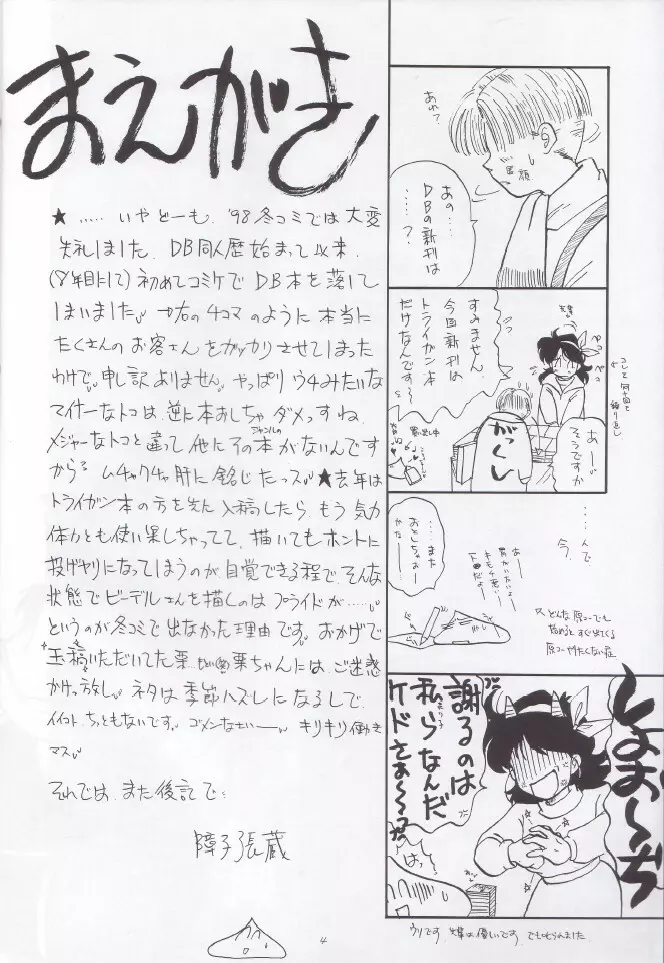 まえがき
★ ..... いやどーも、'98冬コミでは大変
失礼しました。DB同人歴始まって以来、
(8年目にして)初めてコミケでDB本を落して
しまいました。右の4コマのように本当に
たくさんのお客さんをガッカリさせてしまった
わけで、申し訳ありません。やっぱりウチみたいな
マイナーなトコは逆に本おとしちゃダメっすね。
メジャーなトコと違って他にそのジャンルの本がないんです
から。ムチャクチャ肝に銘じたっス。★去年は
トライガン本の方を先に入稿したら、もう気力
体力とも使い果しちゃってて、描いてもホントに
投げヤリになってしまうのが自覚できる程で、そんな
状態でビーデルさんを描くのはプライドが……
というのが冬コミで出なかった理由です。おかげで
玉稿いただいてた栗ちゃんには、ご迷惑
かけっ放し。ネタは季節ハズレになるしで、
イイコトちっともないです。ゴメンなさいー。キリキリ働き
マス。
それでは、また後記で…
障子張蔵
4
あれ?
あの…
DBの新刊は
……?
すみません、
今回新刊は
トライガン本
だけなんです〜
ペコ
ペコ
あー
そうですか
がっくし
コレを何十回と
繰り返し
……んで
今、
…また
おとしちゃおー
かなー
あー
胃がいたいよー
キモチ悪いー
どんな原コーでも
始めるとすぐ出てくる
原コーやりたくない症
しょお〜ぢ
謝るのは
私らなんだ
ケドさぁ〜〜っ
はっ
ウソです。先輩は優しいです。でも叱られました。